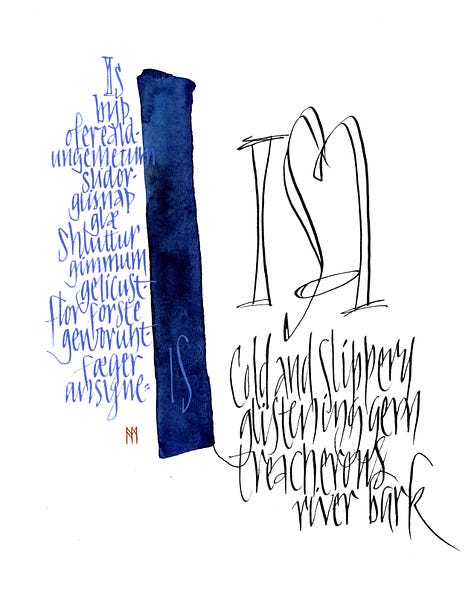 Is
byþ
oferceald·
ungemetum
slidor·
glisnaþ
glæ
shluttur
gimmum
gelicust·
flor forste
geworuht·
fæger
ansyne
IS
Cold and slippery
glistening gem
treacherous
river bark